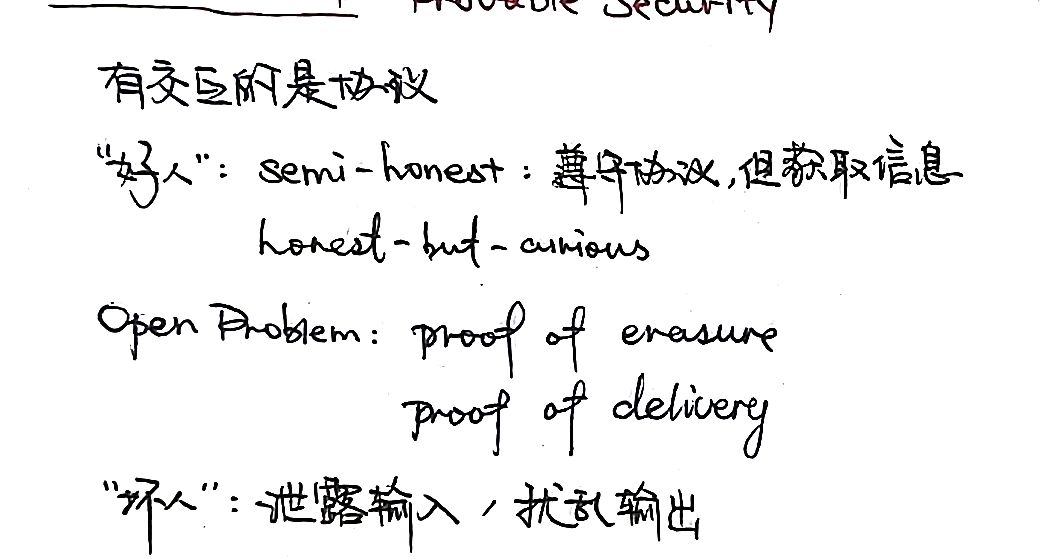 Provable Security
有交互的是协议
“好人”: semi-honest: 遵守协议,但获取信息
honest-but-curious
Open Problem: proof of erasure
proof of delivery
“坏人”: 泄露输入、扰乱输出